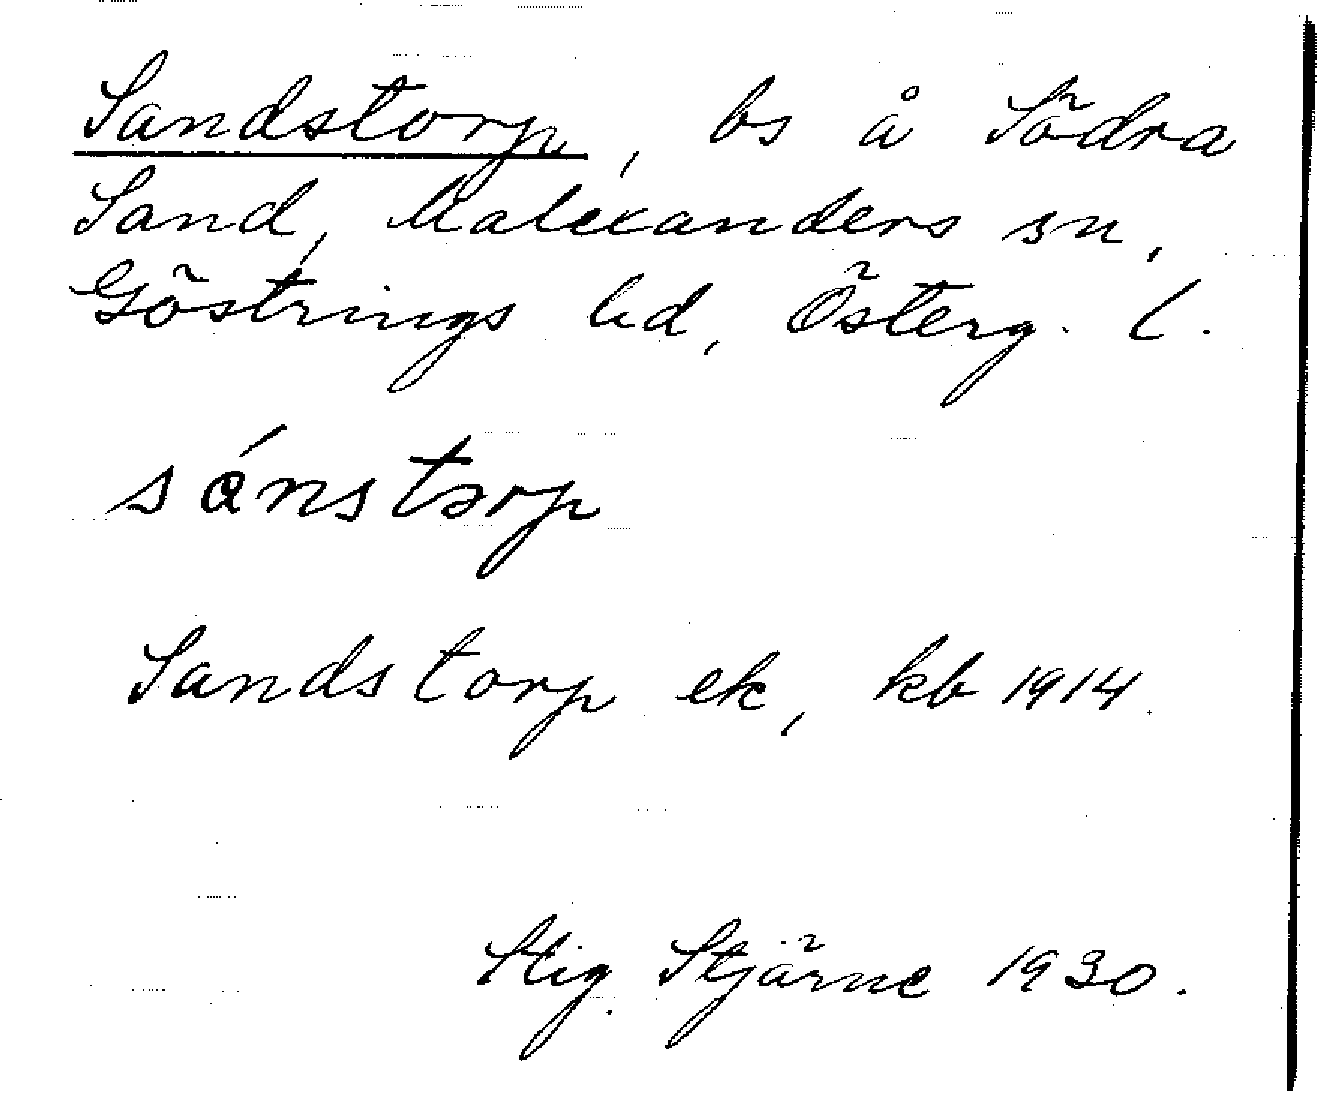 Sandstorp, bs å Södra
Sand, Malexanders sn,
Göstrings hd, Österg. l.
sánstorp
Sandstorp ek, kb 1914.
Stig Stjärne 1930.